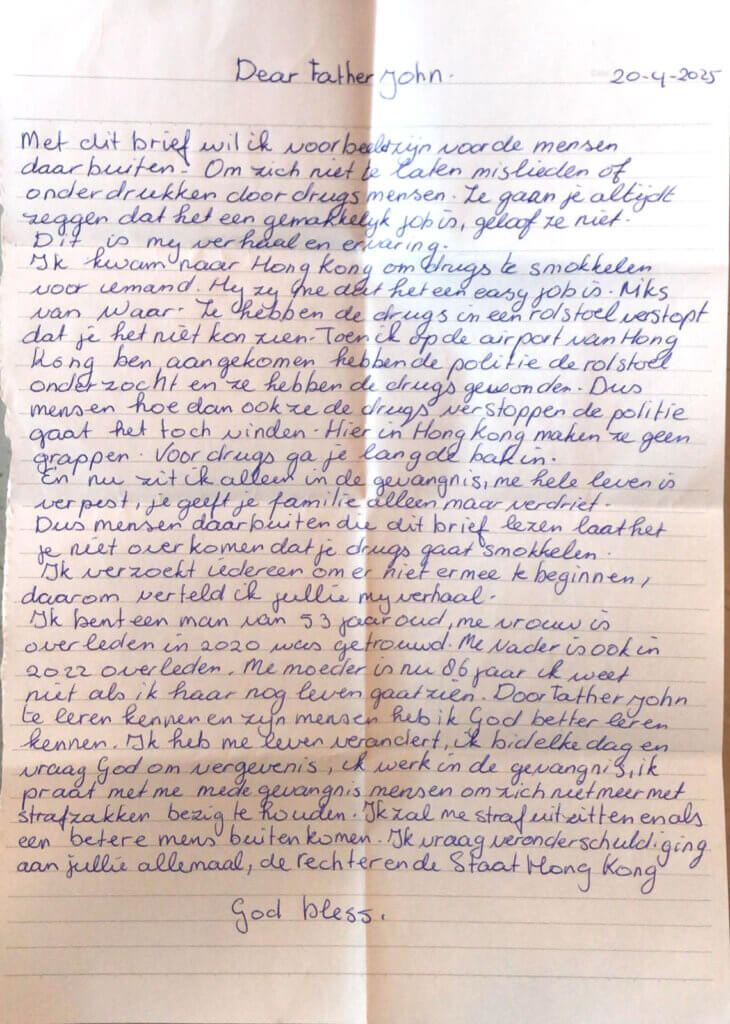 Dear Father John.
20-4-2025
Met dit brief wil ik voorbeeld zijn voor de mensen
daarbuiten. Om zich niet te laten mislieden of
onderdrukken door drugs mensen. Ze gaan je altijdt
zeggen dat het een gemakkelyk job is, geloof ze niet.
Dit is my verhaal en ervaring.
Ik kwam naar Hong Kong om drugs te smokkelen
voor iemand. Hy zy me dat het een easy job is. Niks
van waar. Ze hebben de drugs in een rolstoel verstopt
dat je het niet kon zien. Toen ik op de airport van Hong
Kong ben, aangekomen hebben de politie de rolstoel
onderzocht en ze hebben de drugs gevonden. Dus
mensen hoe dan ook ze de drugs verstoppen de politie
gaat het toch vinden. Hier in Hong Kong maken ze geen
grappen. Voor drugs ga je lang de bak in.
En nu zit ik alleen in de gevangnis, me hele leven is
verpest, je geeft je familie alleen maar verdriet.
Dus mensen daarbuiten die dit brief lezen laat het
je niet overkomen dat je drugs gaat smokkelen.
Ik verzoekt iedereen om er niet ermee te beginnen,
daarom verteld ik jullie my verhaal.
Ik bent een man van 53 jaar oud, me vrouw is
overleden in 2020 was getrouwd. Me vader is ook in
2022 overleden. Me moeder is nu 86 jaar ik weet
niet als ik haar nog leven gaat zien. Door Father John
te leren kennen en zijn mensen heb ik God beter leren
kennen. Ik heb me leven verandert, ik bid elke dag en
vraag God om vergevenis, ik werk in de gevangnis, ik
praat met me mede gevangnis mensen om zich niet meer met
strafzakken bezig te houden. Ik zal me straf uitzitten en als
een betere mens buiten komen. Ik vraag veronderschuldiging
aan jullie allemaal, de rechter en de Staat Hong Kong
God bless.